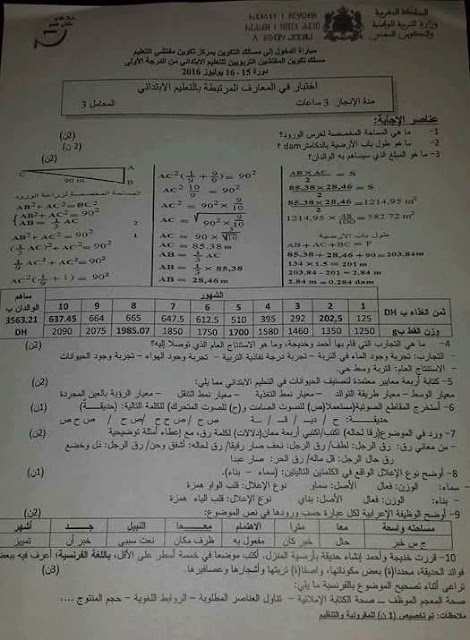 المملكة المغربية
وزارة التربية الوطنية
والتكوين المهني
مباراة الدخول إلى مسلك التكوين بمركز تكوين مفتشي التعليم
مسلك تكوين المفتشين التربويين للتعليم الابتدائي من الدرجة الأولى
دورة 15 - 16 يوليوز 2016
اختبار في المعارف المرتبطة بالتعليم الابتدائي
مدة الإنجاز 3 ساعات المعامل 3
عناصر الإجابة:
1- ما هي المساحة المخصصة لغرس الورود؟ (2ن)
2- ما هو طول باب الأرضية بالدكامتر dam ؟ (2ن)
3- ما هو المبلغ الذي سيساهم به الوالدان؟ (2ن)
C 90 m A B
المساحة المخصصة لزراعة الورود
AB² + AC² = BC²
AB² + AC² = 90²
AB = 1/3 AC
AB² + AC² = 90²
(1/3 AC)² + AC² = 90²
1/9 AC² + AC² = 90²
AC² (1/9 + 1) = 90²
AC² (1/9 + 9/9) = 90²
AC² 10/9 = 90²
AC² = 90² × 9/10
AC = √90² × 9/10
AC = 90 × 3/√10
AC = 85.38 m
AB = 1/3 AC
AB = 1/3 × 85,38
AB = 28,46 m
AB × AC / 2 = S
85.38 × 28,46 / 2 = S
85.38 × 28.46 / 2 = 1214,95 m²
1214,95 × 48/100 = 582.72 m²
طول باب الأرضية
AB + AC + BC = P
85,38 + 28,46 + 90 = 203.84m
134 × 1.5 = 201 m
203.84 - 201 = 2.84 m
2.84 m = 0.284 dam
الشهور ساهم الوالدان ب
1 2 3 4 5 6 7 8 9 10 3563.21 DH
ثمن الغذاء ب DH 125 202,5 292 395 510 612.5 647.5 665 664 637.45
وزن العلف ب g 1250 1350 1460 1580 1700 1750 1850 1985.07 2075 2090
4- ما هي التجارب التي قام بها أحمد وخديجة، وما هو الاستنتاج العام الذي توصلا إليه؟ (2ن)
- التجارب: تجربة وجود الماء في التربة - تجربة درجة نفاذية التربة - تجربة وجود الهواء - تجربة وجود الحيوانات
- الاستنتاج العام: التربة وسط حي.
5- كتابة أربعة معايير معتمدة لتصنيف الحيوانات في التعليم الابتدائي مما يلي: (2ن)
معيار الوسط - معيار طريقة التوالد - معيار نمط التغذية - معيار نمط التنقل - معيار الرؤية بالعين المجردة
6- أستخرج المقاطع الصوتية(مستعملا(ص) للصوت الصامت و(ح) للصوت المتحرك) للكلمة التالية: (حديقة) (1ن)
7- ورد في الموضوع(رقا لحاله) اكتب/اكتبي أربعة معان(دلالات) لكلمة رق، مع إعطاء أمثلة توضيحية (2ن)
- من معاني رق: رق الرجل: لطف/ رق الرجل: نحف صار رقيقا/ رق لحاله: أشفق وحن/ رق الرجل: ذل وخضع
رق حال الرجل: قل ماله/ رق الحر: صار عبدا
8- أوضح نوع الإعلال الواقع في الكلمتين التاليتين: (سماء - بناء). (1ن)
- سماء: الوزن: فعال الأصل: سماو نوع الإعلال: قلب الواو همزة
- بناء: الوزن: فعال الأصل: بناي نوع الإعلال: قلب الياء همزة
9- أوضح الوظيفة الإعرابية لكل عبارة حسب ورودها في نص الموضوع: (2ن)
مساحته واسعة معا مترا الاهتمام معها النبيل جد أشهر
ج س خبر حال خبر كان مفعول به ظرف مكان نعت سببي خبر أن تمييز
10- قررت خديجة وأحمد إنشاء حديقة بأرضية المنزل، أكتب موضعا في خمسة أسطر على الأقل، باللغة الفرنسية؛ أعرف فيه ببعض
فوائد الحديقة، محددا(ة) بعض مكوناتها، واصفا(ة) تربتها وأشجارها وعصافيرها. (3ن)
تراعى أثناء تصحيح الموضوع بالفرنسية ما يلي:
صحة المعجم الموظف - صحة الكتابة الإملائية - تناول العناصر المطلوبة - الروابط اللغوية - حجم المنتوج ....
ملاحظات: تم تخصيص (1 ن) للمقروئية والتنظيم